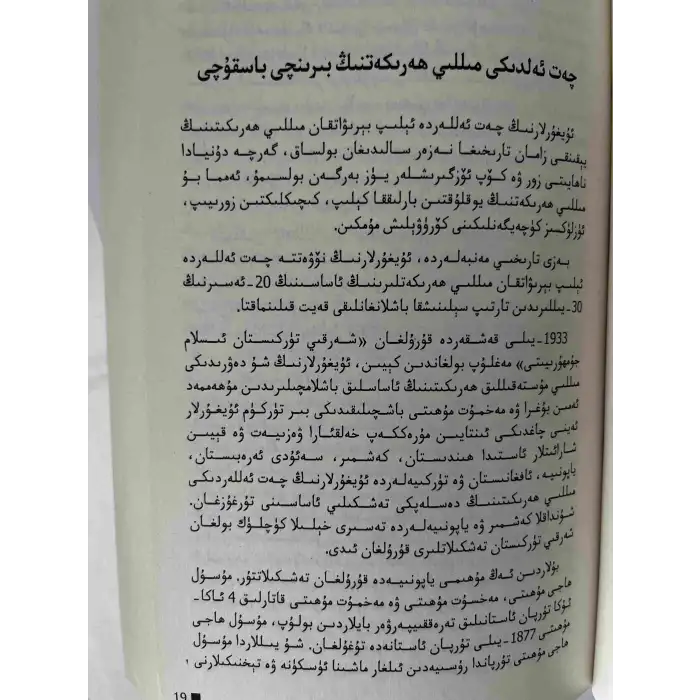 چەت ئەلدىكى مىللىي ھەرىكەتنىڭ بىرىنچى باسقۇچى
ئۇيغۇرلارنىڭ چەت ئەللەردە ئېلىپ بېرىۋاتقان مىللىي ھەرىكىتىنىڭ
يېقىنقى زامان تارىخىغا نەزەر سالىدىغان بولساق، گەرچە دۇنيادا
ناھايىتى زور ۋە كۆپ ئۆزگىرىشلەر يۈز بەرگەن بولسىمۇ، ئەمما بۇ
مىللىي ھەرىكەتنىڭ يوقلۇقتىن بارلىققا كېلىپ، كىچىكلىكتىن زورىيىپ،
ئۈزلۈكسىز كۈچەيگەنلىكىنى كۆرۈۋېلىش مۇمكىن.
بەزى تارىخىي مەنبەلەردە، ئۇيغۇرلارنىڭ نۆۋەتتە چەت ئەللەردە
ئېلىپ بېرىۋاتقان مىللىي ھەرىكەتلىرىنىڭ ئاساسىنىڭ 20-ئەسىرنىڭ
30-يىللىرىدىن تارتىپ سېلىنىشقا باشلانغانلىقى قەيت قىلىنماقتا.
1933-يىلى قەشقەردە قۇرۇلغان «شەرقىي تۈركىستان ئىسلام
جۇمھۇرىيىتى» مەغلۇپ بولغاندىن كېيىن، ئۇيغۇرلارنىڭ شۇ دەۋردىكى
مىللىي مۇستەقىللىق ھەرىكىتىنىڭ ئاساسلىق باشلامچىلىرىدىن مۇھەممەد
ئەمىن بۇغرا ۋە مەخمۇت مۇھىتى باشچىلىقىدىكى بىر تۈركۈم ئۇيغۇرلار
ئەينى چاغدىكى ئىنتايىن مۇرەككەپ خەلقئارا ۋەزىيەت ۋە قېيىن
شارائىتلار ئاستىدا ھىندىستان، كەشمىر، سەئۇدى ئەرەبىستان،
ياپونىيە، ئافغانىستان ۋە تۈركىيەلەردە ئۇيغۇرلارنىڭ چەت ئەللەردىكى
مىللىي ھەرىكىتىنىڭ دەسلەپكى تەشكىلىي ئاساسىنى تۇرغۇزغان.
شۇنداقلا كەشمىر ۋە ياپونىيەلەردە تەسىرى خېلىلا كۈچلۈك بولغان
شەرقىي تۈركىستان تەشكىلاتلىرى قۇرۇلغان ئىدى.
بۇلاردىن ئەڭ مۇھىمى ياپونىيەدە قۇرۇلغان تەشكىلاتتۇر. مۇسۇل
ھاجى مۇھىتى، مەخسۇت مۇھىتى ۋە مەخمۇت مۇھىتى قاتارلىق 4 ئاكا-
ئۇكا تۇرپان ئاستانىلىق تەرەققىيپەرۋەر بايلاردىن بولۇپ، مۇسۇل ھاجى
مۇھىتى 1877-يىلى تۇرپان ئاستانەدە تۇغۇلغان. شۇ يىللاردا مۇسۇل
ھاجى مۇھىتى تۇرپاندا رۇسىيەدىن ئىلغار ماشىنا ئۈسكۈنە ۋە تېخنىكىلارنى
19